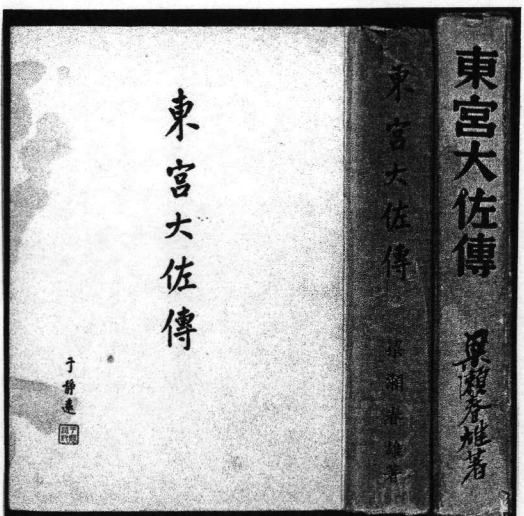 東宮大佐傳
于靜遠
東宮大佐傳
梁瀨春雄著
東宮大佐傳
梁瀨春雄著